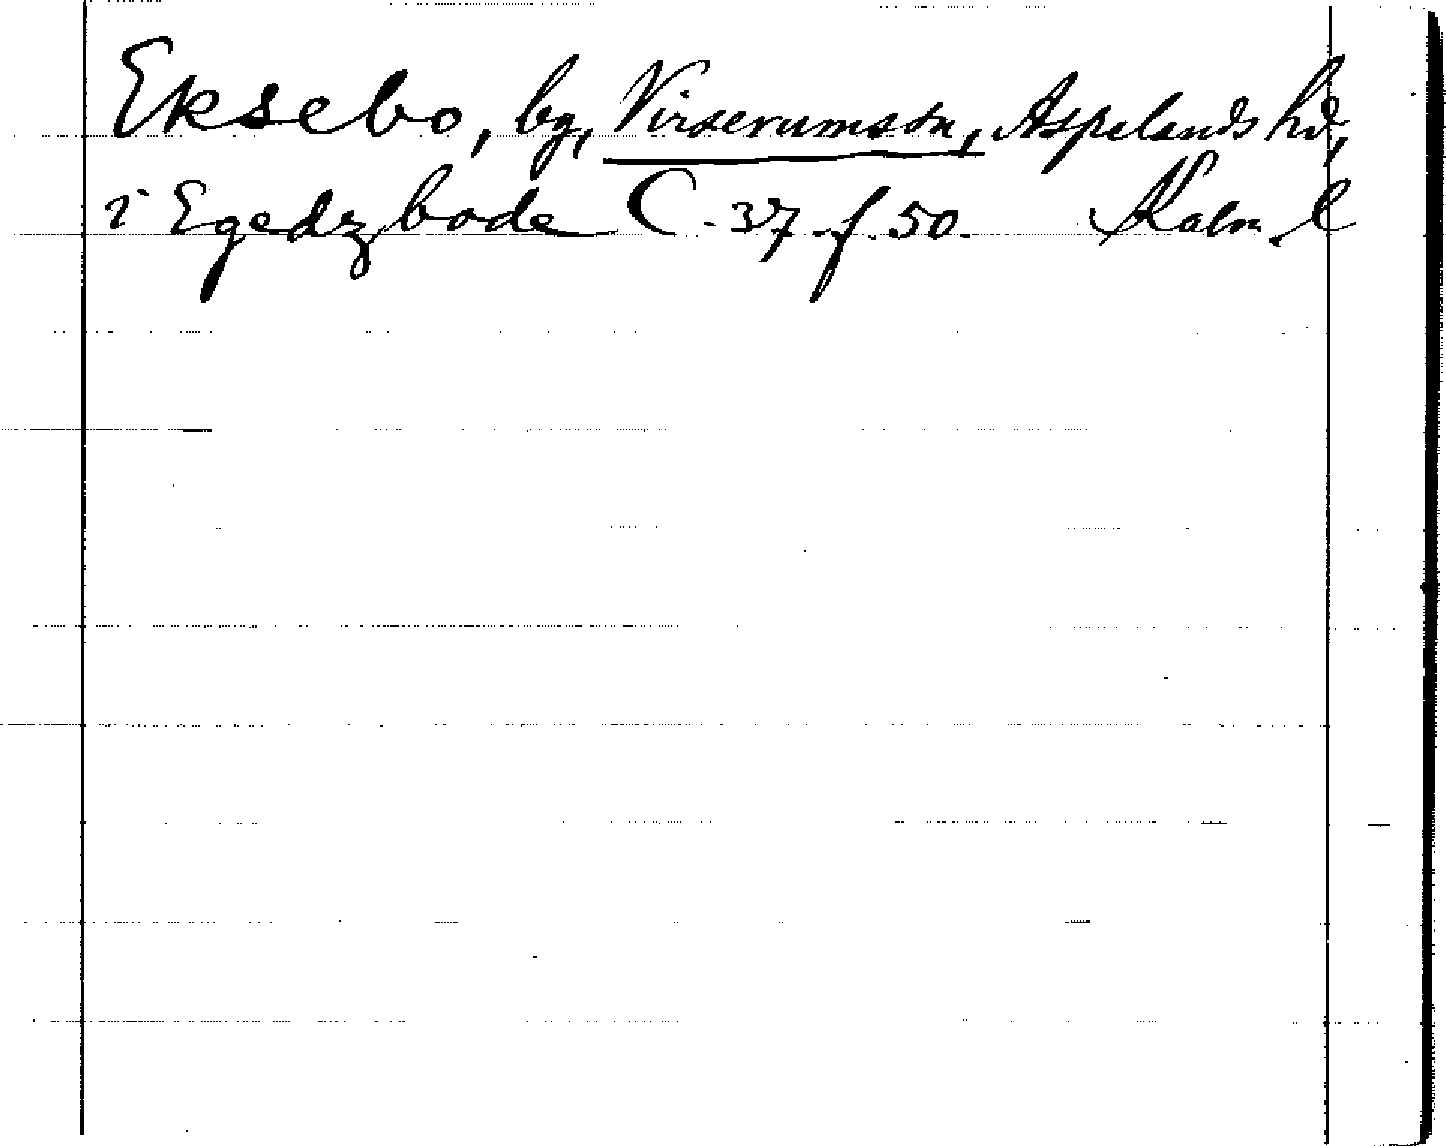 Eksebo, by, Virserums sn, Aspelands hd,
i Egedzbode C-37 f. 50. Kalm. l